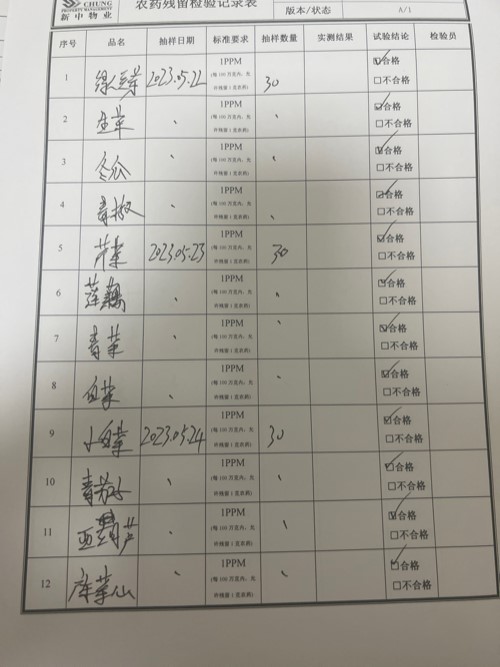 CHUNG
PROPERTY MANAGEMENT
新中物业
农药残留检验记录表
版本/状态 A/1
序号 品名 抽样日期 标准要求 抽样数量 实测结果 试验结论 检验员
1 绿豆芽 2023.05.22 1PPM (每100万克内，允许残留1克农药) 30 ☑合格 □不合格
2 1PPM (每100万克内，允许残留1克农药) ☑合格 □不合格
3 冬瓜 1PPM (每100万克内，允许残留1克农药) ☑合格 □不合格
4 青椒 1PPM (每100万克内，允许残留1克农药) ☑合格 □不合格
5 芹菜 2023.05.23 1PPM (每100万克内，允许残留1克农药) 30 ☑合格 □不合格
6 莲藕 1PPM (每100万克内，允许残留1克农药) ☑合格 □不合格
7 青菜 1PPM (每100万克内，允许残留1克农药) ☑合格 □不合格
8 白菜 1PPM (每100万克内，允许残留1克农药) ☑合格 □不合格
9 小白菜 2023.05.24 1PPM (每100万克内，允许残留1克农药) 30 ☑合格 □不合格
10 1PPM (每100万克内，允许残留1克农药) ☑合格 □不合格
11 西葫芦 1PPM (每100万克内，允许残留1克农药) ☑合格 □不合格
12 1PPM (每100万克内，允许残留1克农药) ☑合格 □不合格